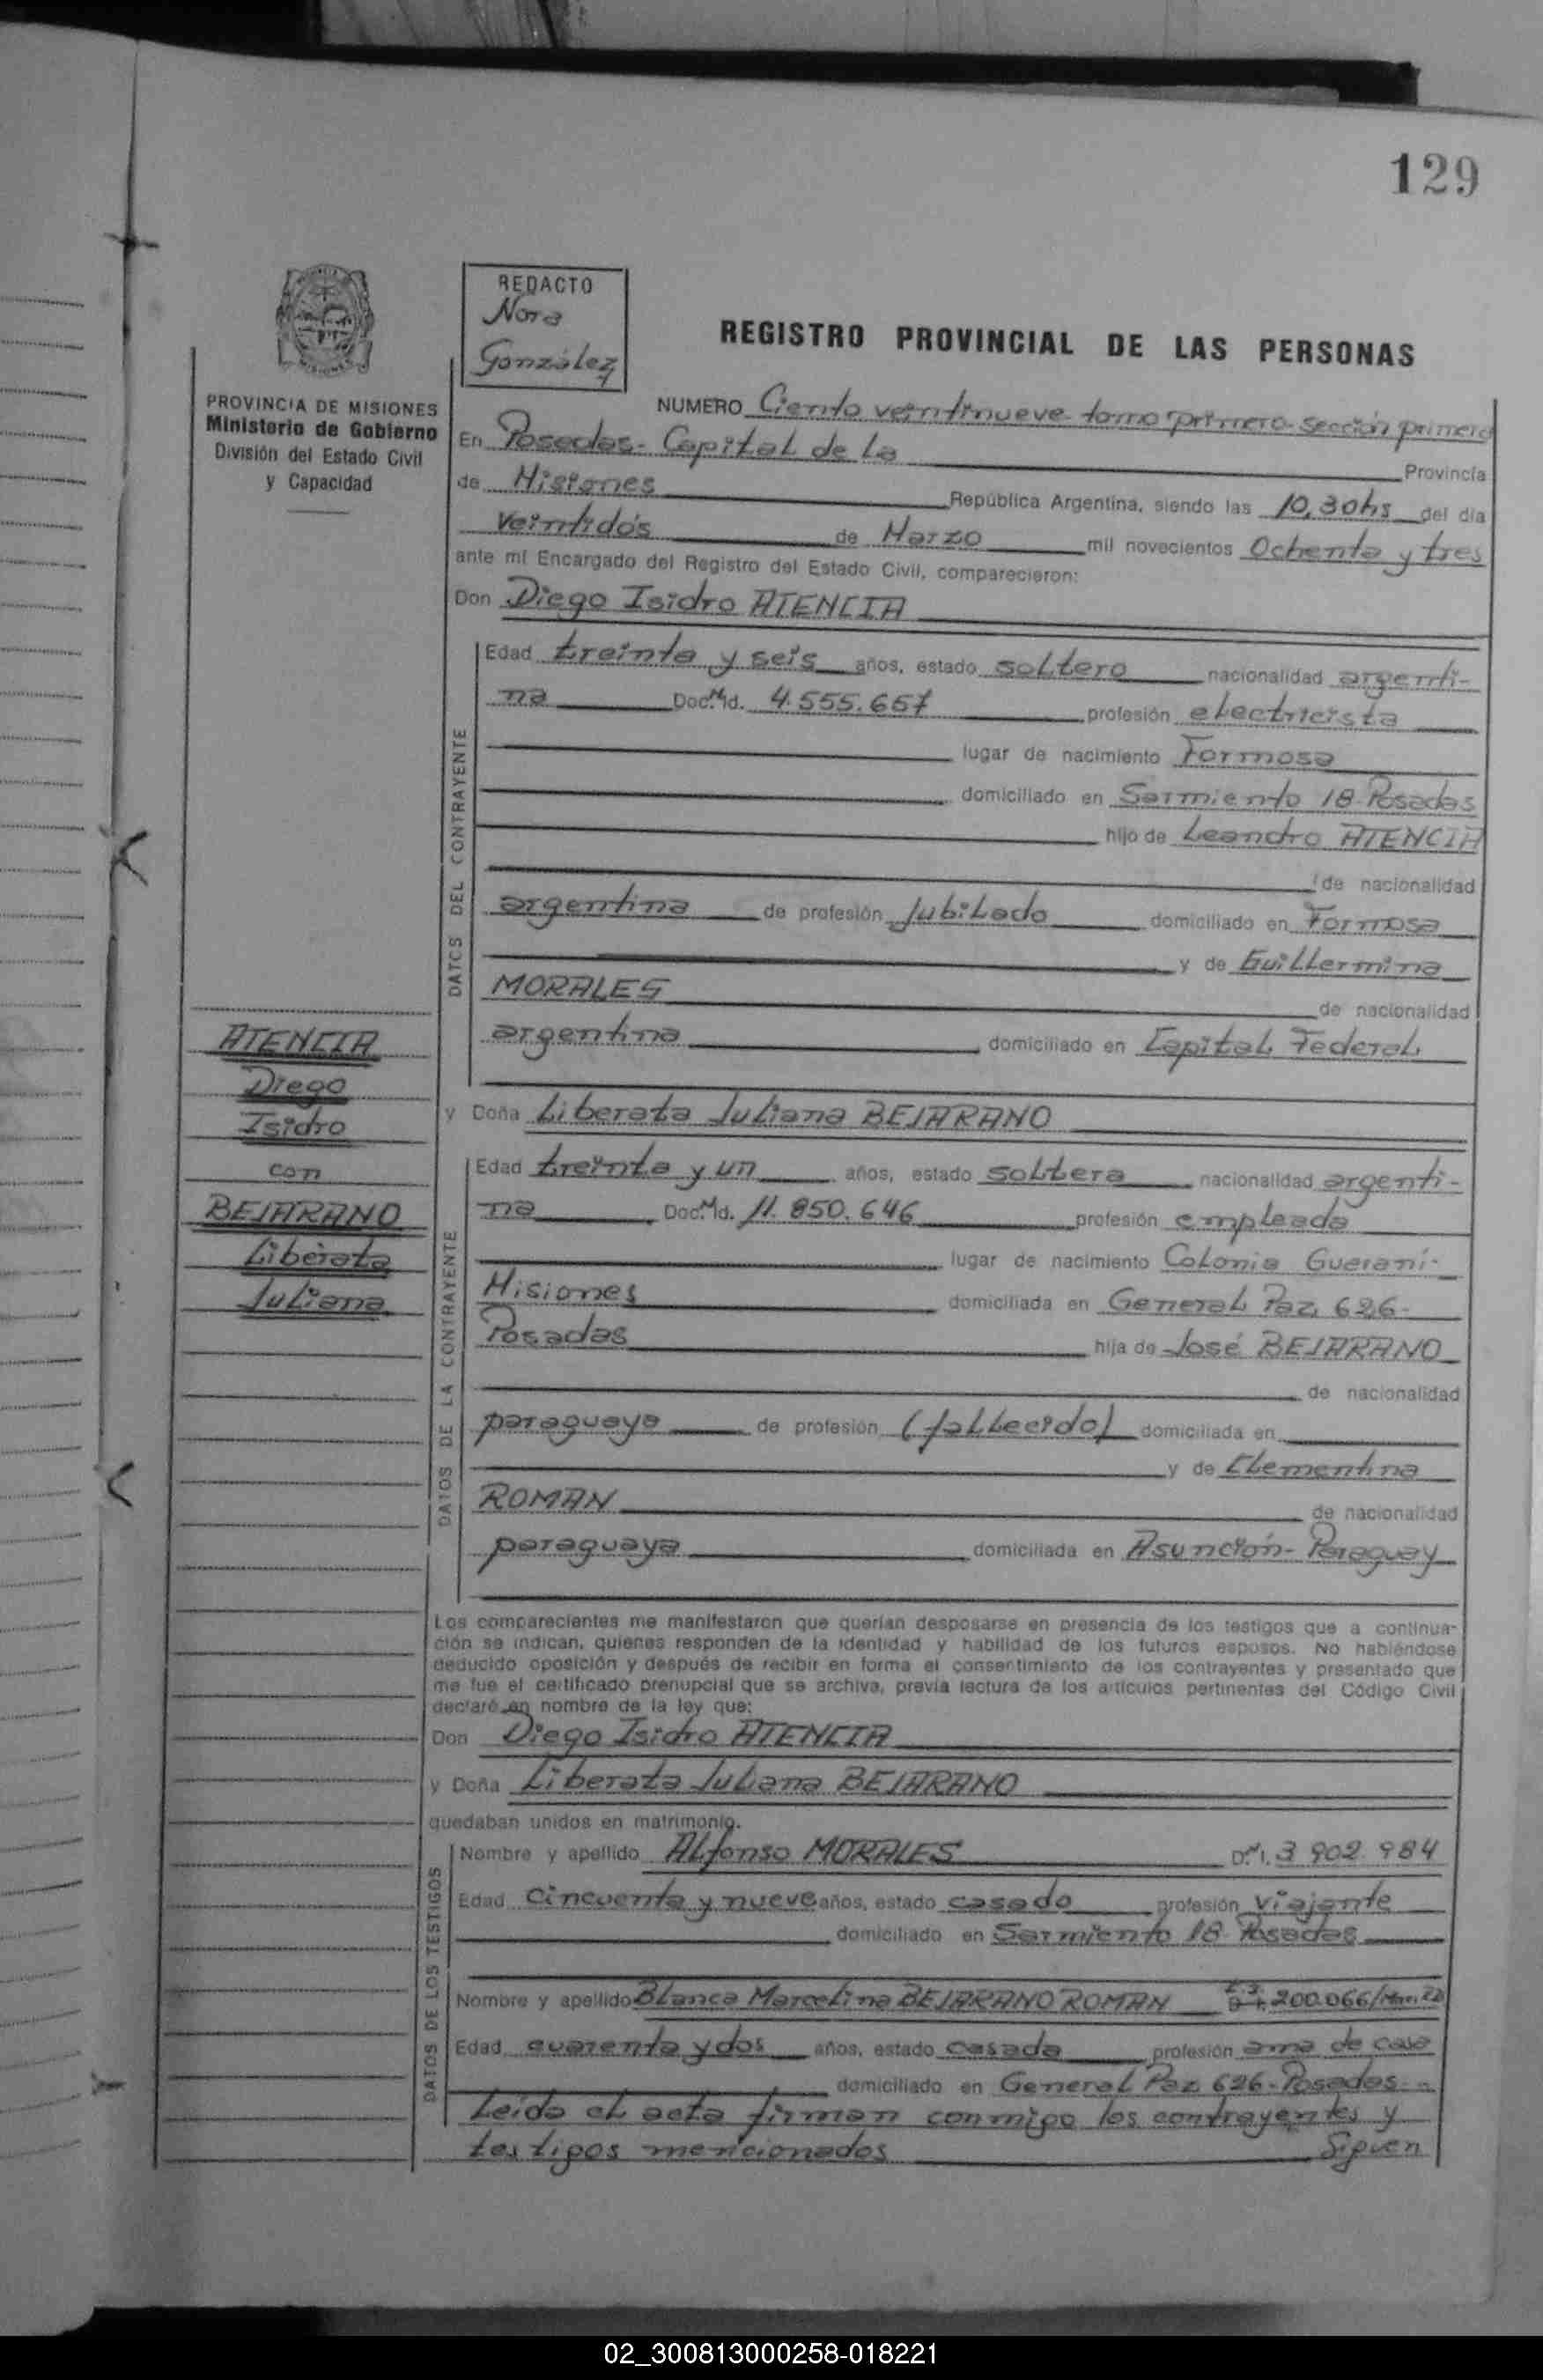 129
REDACTO
Nora
González
REGISTRO PROVINCIAL DE LAS PERSONAS
PROVINCIA DE MISIONES
Ministerio de Gobierno
División del Estado Civil
y Capacidad
NUMERO Ciento veintinueve tomo primero sección primera
En Posadas - Capital de La Provincia
de Misiones República Argentina, siendo las 10,30hs del día
Veintidós de Marzo mil novecientos Ochenta y tres
ante mí Encargado del Registro del Estado Civil, comparecieron:
Don Diego Isidro ATENCIA
DATOS DEL CONTRAYENTE
Edad treinta y seis años, estado soltero nacionalidad argenti-
na Doc. Id. 4.555.657 profesión electricista
lugar de nacimiento Formosa
domiciliado en Sarmiento 18 Posadas
hijo de Leandro ATENCIA
de nacionalidad
argentina de profesión Jubilado domiciliado en Formosa
y de Guillermina
MORALES de nacionalidad
argentina domiciliado en Capital Federal
y Doña Liberata Juliana BEJARANO
ATENCIA
Diego
Isidro
con
BEJARANO
Liberata
Juliana
DATOS DE LA CONTRAYENTE
Edad treinta y un años, estado soltera nacionalidad argenti-
na Doc. Id. 11.850.646 profesión empleada
lugar de nacimiento Colonia Guaraní-
Misiones domiciliada en General Paz 626-
Posadas hija de José BEJARANO
de nacionalidad
paraguaya de profesión (fallecido) domiciliada en
y de Clementina
ROMAN de nacionalidad
paraguaya domiciliada en Asunción - Paraguay
Los comparecientes me manifestaron que querían desposarse en presencia de los testigos que a continua-
ción se indican, quienes responden de la identidad y habilidad de los futuros esposos. No habiéndose
deducido oposición y después de recibir en forma el consentimiento de los contrayentes y presentado que
me fue el certificado prenupcial que se archiva, previa lectura de los artículos pertinentes del Código Civil
declaré en nombre de la ley que:
Don Diego Isidro ATENCIA
y Doña Liberata Juliana BEJARANO
quedaban unidos en matrimonio.
DATOS DE LOS TESTIGOS
Nombre y apellido Alfonso MORALES D.M.I. 3 902 984
Edad Cincuenta y nueve años, estado casado profesión viajante
domiciliado en Sarmiento 18 Posadas
Nombre y apellido Blanca Marcelina BEJARANO ROMAN 200.066
Edad cuarenta y dos años, estado casada profesión ama de casa
domiciliado en General Paz 626 - Posadas -
Leída el acta firman conmigo los contrayentes y
testigos mencionados Siguen
02_300813000258-018221